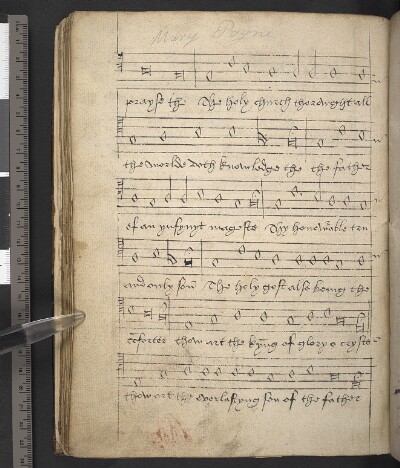 Mary Payne
prayse the The holy church thorowght all
the worlde doth knowledge the the father
of an ynfynyt mageste Thy honorable tru
and only son The holy gost also beinge the
cōforter thow art the kyng of glory o cryste
thow art the everlastyng son of the father